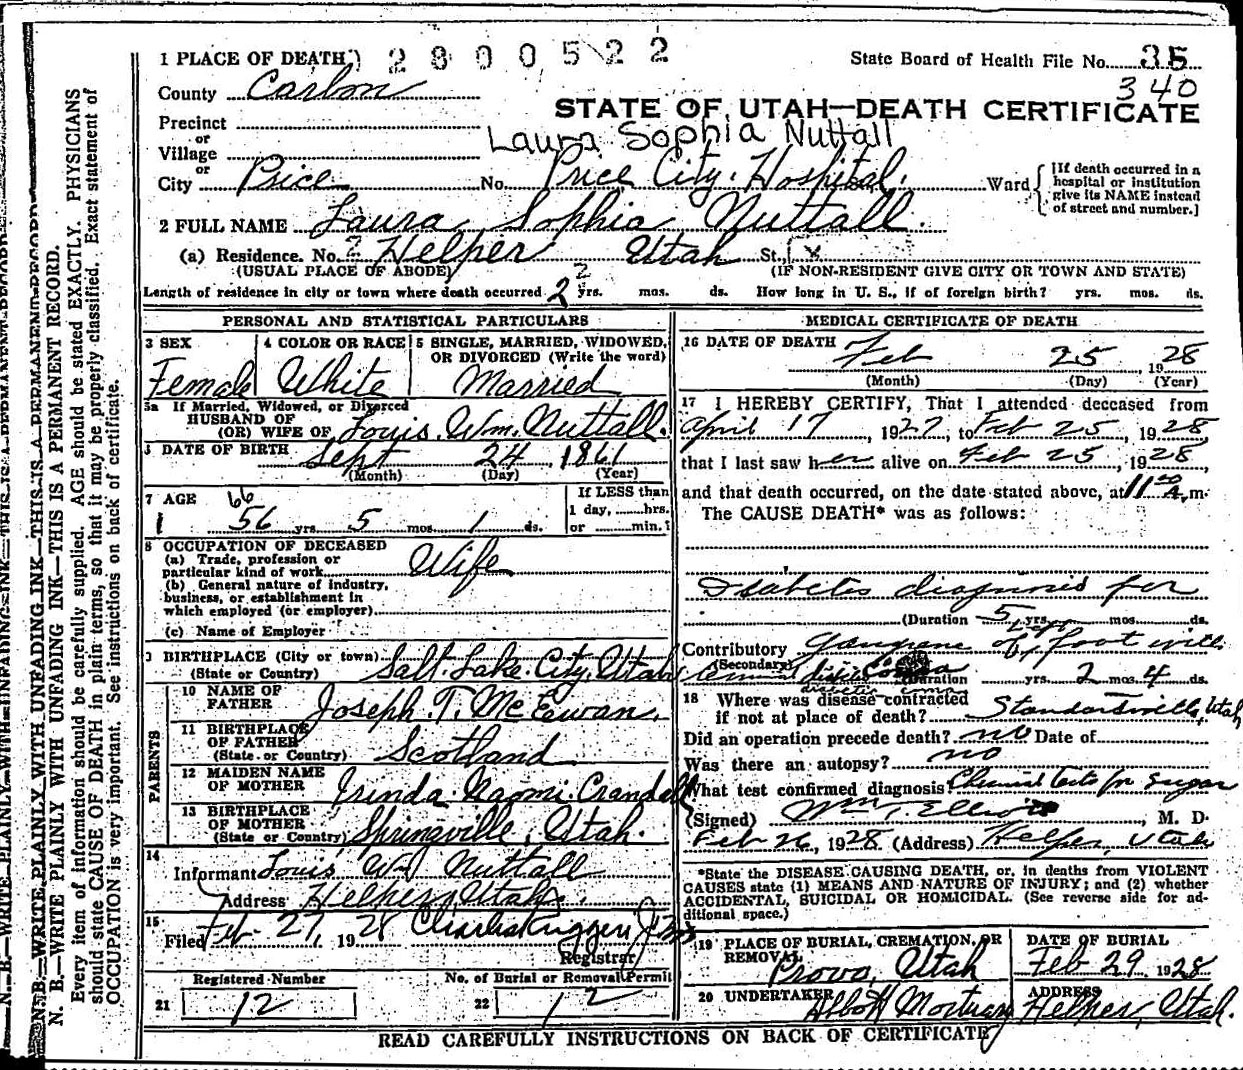 1 PLACE OF DEATH 2800522 State Board of Health File No. 35
County Carbon 340
STATE OF UTAH—DEATH CERTIFICATE
Precinct
or
Village
Laura Sophia Nuttall
or
City Price No. Price City Hospital. Ward
[If death occurred in a hospital or institution give its NAME instead of street and number.]
2 FULL NAME Laura Sophia Nuttall.
(a) Residence. No. ? Helper Utah St., x
(USUAL PLACE OF ABODE) (IF NON-RESIDENT GIVE CITY OR TOWN AND STATE)
Length of residence in city or town where death occurred 2 2 yrs. mos. ds. How long in U. S., if of foreign birth? yrs. mos. ds.
PERSONAL AND STATISTICAL PARTICULARS
3 SEX Female
4 COLOR OR RACE White
5 SINGLE, MARRIED, WIDOWED, OR DIVORCED (Write the word) Married
5a If Married, Widowed, or Divorced
HUSBAND OF
(OR) WIFE OF Louis. Wm. Nuttall.
DATE OF BIRTH Sept 24, 1861
(Month) (Day) (Year)
7 AGE 66
56 yrs. 5 mos. 1 ds.
If LESS than
1 day, hrs.
or min.
8 OCCUPATION OF DECEASED
(a) Trade, profession or
particular kind of work Wife
(b) General nature of industry,
business, or establishment in
which employed (or employer)
(c) Name of Employer
BIRTHPLACE (City or town)
(State or Country) Salt Lake City, Utah
PARENTS
10 NAME OF
FATHER Joseph. T. McEwan.
11 BIRTHPLACE
OF FATHER
(State or Country) Scotland
12 MAIDEN NAME
OF MOTHER Naomi Crandell
13 BIRTHPLACE
OF MOTHER
(State or Country) Springville, Utah.
14
Informant Louis Wm Nuttall
Address Helper, Utah.
15
Filed Feb 27, 1928
Registrar
Registered Number No. of Burial or Removal Permit
21 12 22 12
MEDICAL CERTIFICATE OF DEATH
16 DATE OF DEATH Feb 25, 1928
(Month) (Day) (Year)
17 I HEREBY CERTIFY, That I attended deceased from
April 17, 1927, to Feb 25, 1928
that I last saw her alive on Feb 25, 1928,
and that death occurred, on the date stated above, at 11 00 A m.
The CAUSE DEATH* was as follows:
Diabetes diagnosed for
(Duration 5 yrs. mos. ds.
Contributory Gangrene of foot with
(Secondary) terminal diabetic coma
(Duration yrs. 2 mos. 4 ds.
diabetic coma
18 Where was disease contracted
if not at place of death? Standardville, Utah
Did an operation precede death? no Date of
Was there an autopsy? no
What test confirmed diagnosis? Chemical tests for sugar
(Signed) Wm. T. Elliott, M. D.
Feb 26, 1928 (Address) Helper, Utah
*State the DISEASE CAUSING DEATH, or, in deaths from VIOLENT
CAUSES state (1) MEANS AND NATURE OF INJURY; and (2) whether
ACCIDENTAL, SUICIDAL OR HOMICIDAL. (See reverse side for ad-
ditional space.)
19 PLACE OF BURIAL, CREMATION, OR
REMOVAL Provo, Utah
DATE OF BURIAL
Feb 29 1928
20 UNDERTAKER Mortuary
ADDRESS
Helper, Utah.
READ CAREFULLY INSTRUCTIONS ON BACK OF CERTIFICATE
N. B.—WRITE PLAINLY WITH UNFADING INK—THIS IS A PERMANENT RECORD
N. B.—WRITE PLAINLY WITH UNFADING INK—THIS IS A PERMANENT RECORD
N. B.—WRITE PLAINLY WITH UNFADING INK—THIS IS A PERMANENT RECORD.
Every item of information should be carefully supplied. AGE should be stated EXACTLY. PHYSICIANS
should state CAUSE OF DEATH in plain terms, so that it may be properly classified. Exact statement of
OCCUPATION is very important. See instructions on back of certificate.